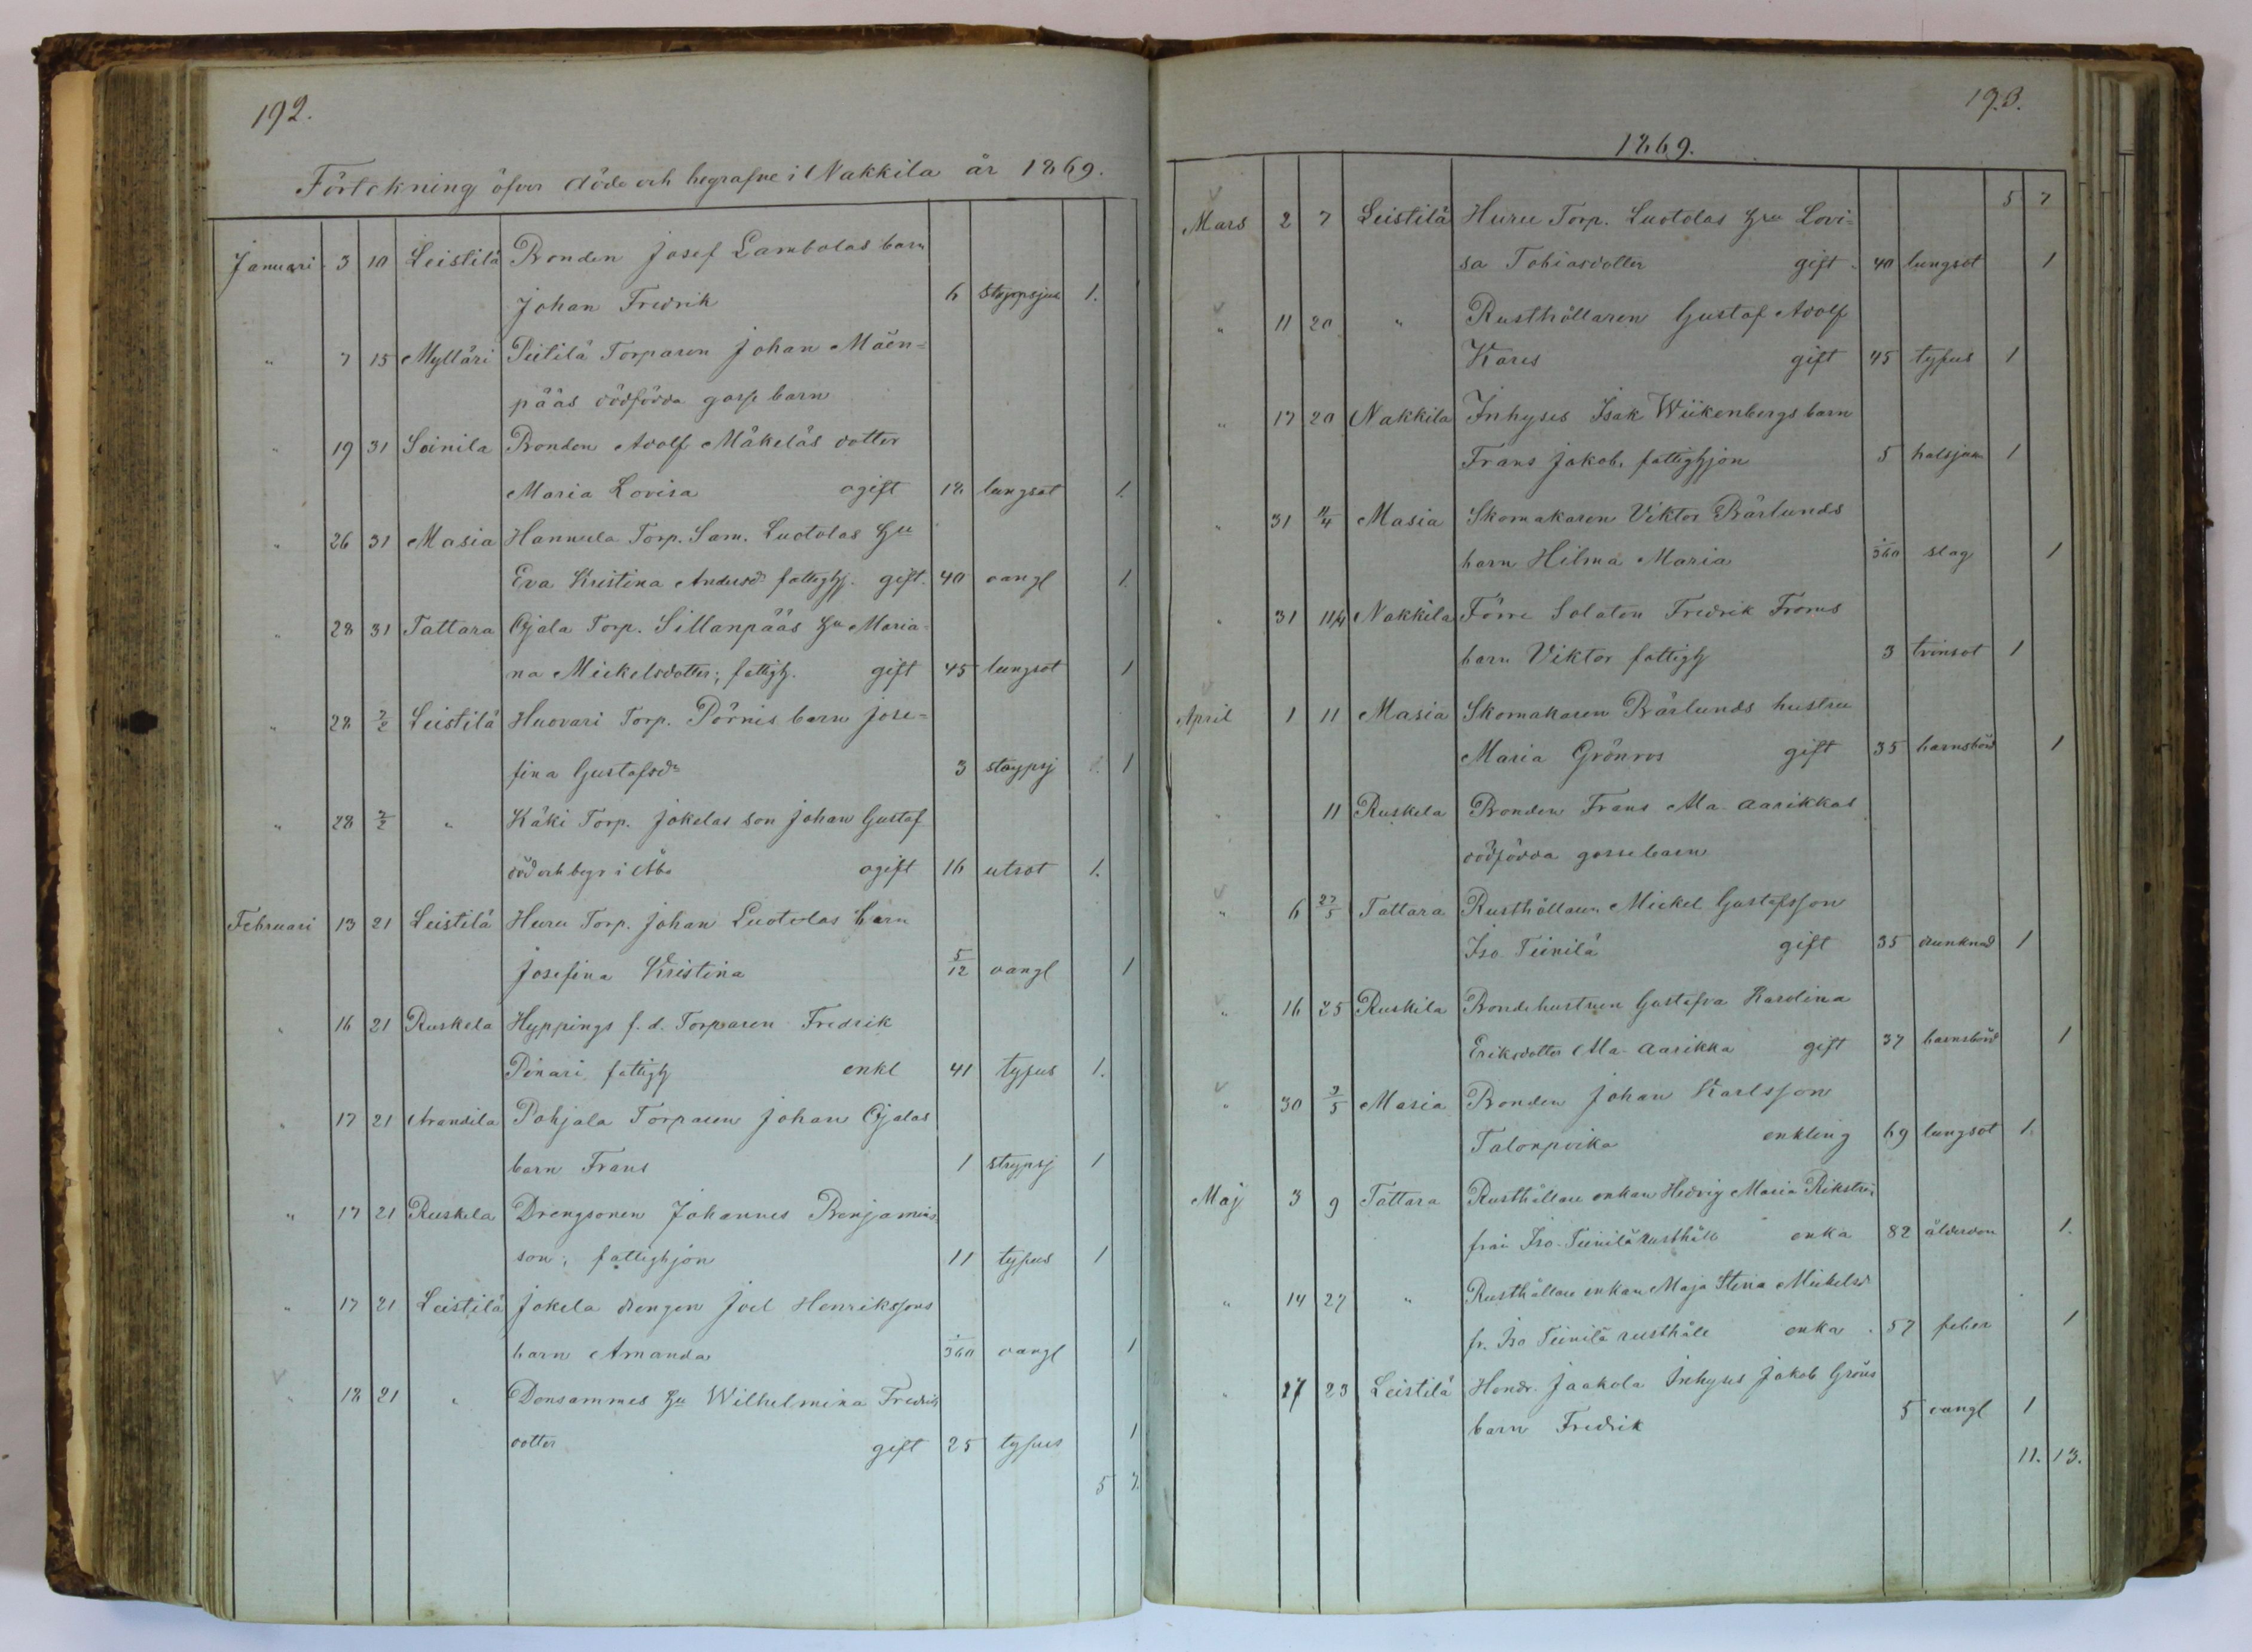 192.
Förtekning öfver döde och begrafne i Nakkila år 1869.
Januari 3 10 Leistilä Bonden Josef Lambolas barn
Johan Fredrik 6 strypsjuk 1.
" 7 15 Mylläri Piitilä Torparen Johan Mäen=
pääs dödfödda gosse barn
" 19 31 Soinila Bonden Adolf Mäkeläs dotter
Maria Lovisa ogift 18 lungsot 1.
" 26 31 Masia Hannula Torp. Sam. Luotolas hu
Eva Kristina Andersdr fattighj. gift. 40 vangl 1.
" 28 31 Tattara Ojala Torp. Sillanpääs hu Maria=
na Mickelsdotter; fattigh. gift 45 lungsot 1
" 28 7/2 Leistilä Huovari Torp. Pörnis barn Jose=
fina Gustafsdr 3 strypsj 1
" 28 7/2 " Käki Torp. Jokelas son Johan Gustaf
död och begr i Åbo ogift 16 utsot 1.
Februari 13 21 Leistilä Huru Torp. Johan Luotolas barn
Josefina Kristina 5/12 vangl 1
" 16 21 Ruskela Hyppings f. d. Torparen Fredrik
Pönäri fattigh enkl 41 tyfus 1.
" 17 21 Arandila Pohjala Torparen Johan Ojalas
barn Frans 1 strypsj 1
" 17 21 Ruskela Drengsonen Johannes Benjamins
son; fattighjon 11 tyfus 1
" 17 21 Leistilä Jokela drengen Joel Henrikssons
barn Amanda 1/360 vangl 1
" 18 21 " Densammes hu Wilhelmina Fredriks
dotter gift 25 tyfus 1
5 7.
193.
1869.
5 7
Mars 2 7 Leistilä Huru Torp. Luotolas hru Lovi=
sa Tobiasdotter gift 40 lungsot 1
" 11 20 " Rusthållaren Gustaf Adolf
Kares gift 45 tyfus 1
" 17 20 Nakkila Inhyses Isak Wiikenbergs barn
Frans Jakob, fattighjon 5 halsjuk 1
" 31 11/4 Masia Skomakaren Viktor Bärlunds
barn Hilma Maria 1/360 slag 1
" 31 11/4 Nakkila Förre Soldaten Fredrik Froms
barn Viktor fattigh 3 tvinsot 1
April 1 11 Masia Skomakaren Bärlunds hustru
Maria Grönros gift 35 barnsbörd 1
" 11 Ruskela Bonden Frans Ala-Aarikkas
dödfödda gossebarn
" 6 27/5 Tattara Rusthållaren Mickel Gustafsson
Iso Tiinilä gift 35 drunknad 1
" 16 25 Ruskila Bondehustrun Gustafva Karolina
Eriksdotter Ala-Aarikka gift 37 barnsbörd 1
" 30 9/5 Masia Bonden Johan Karlsson
Talonpoika enkling 69 lungsot 1.
Maj 3 9 Tattara Rusthållare enkan Hedvig Maria Rikström
från Iso-Tiinilä rusthåll enka 82 ålderdom 1.
" 14 27 " Rusthållare enkan Maja Stina Mickelsd
fr. Iso Tiinilä rusthåll enka 57 feber 1
" 17 23 Leistilä Hendr. Jaakola Inhyses Jakob Gröns
barn Fredrik 5 vangl 1
11. 13.